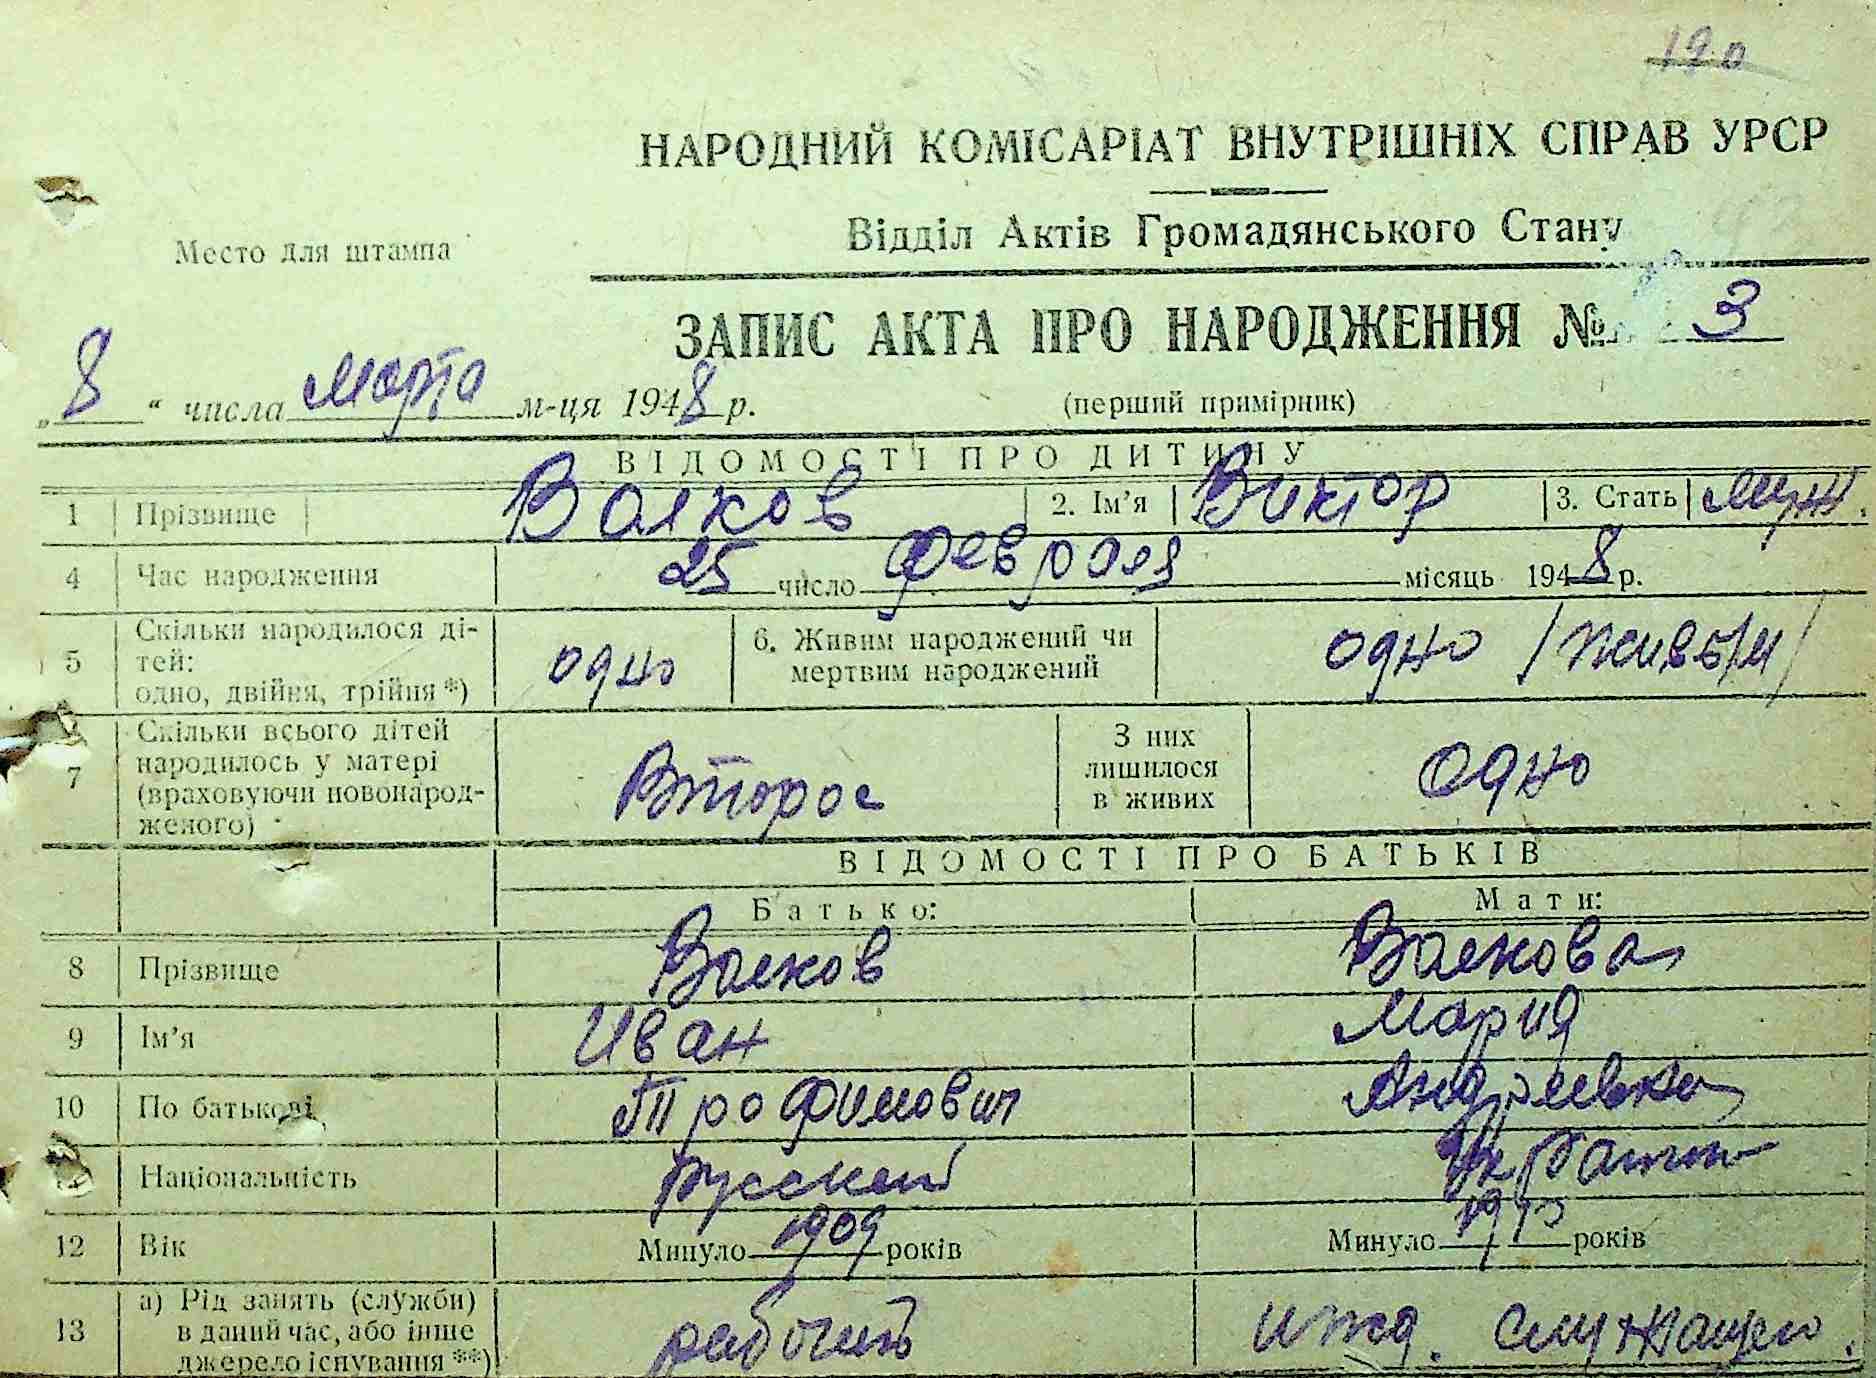 190
НАРОДНИЙ КОМІСАРІАТ ВНУТРІШНІХ СПРАВ УРСР
Место для штампа
Відділ Актів Громадянського Стану
ЗАПИС АКТА ПРО НАРОДЖЕННЯ № 3
„8“ числа марта м-ця 1948 р.
(перший примірник)
ВІДОМОСТІ ПРО ДИТИНУ
1 Прізвище Волков 2. Ім'я Виктор 3. Стать муж.
4 Час народження 25 число февроля місяць 1948 р.
5 Скільки народилося ді-
тей:
одно, двійня, трійня *) одно 6. Живим народжений чи
мертвим народжений одно /живым/
7 Скільки всього дітей
народилось у матері
(враховуючи новонарод-
женого) Второе З них
лишилося
в живих Одно
ВІДОМОСТІ ПРО БАТЬКІВ
Батько: Мати:
8 Прізвище Волков Волкова
9 Ім'я Иван Мария
10 По батькові Трофимович Андреевна
Національність Русский
12 Вік Минуло 1909 років Минуло років
13 а) Рід занять (служби)
в даний час, або інше
джерело існування **) рабочий ижд. служащего.